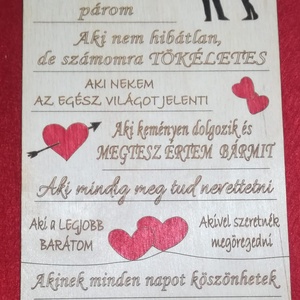 párom
Aki nem hibátlan,
de számomra TÖKÉLETES
AKI NEKEM
AZ EGÉSZ VILÁGOT JELENTI
Aki keményen dolgozik és
MEGTESZ ÉRTEM BÁRMIT
Aki mindig meg tud nevettetni
Aki a LEGJOBB
BARÁTOM
Akivel szeretnék
megöregedni
Akinek minden napot köszönhetek